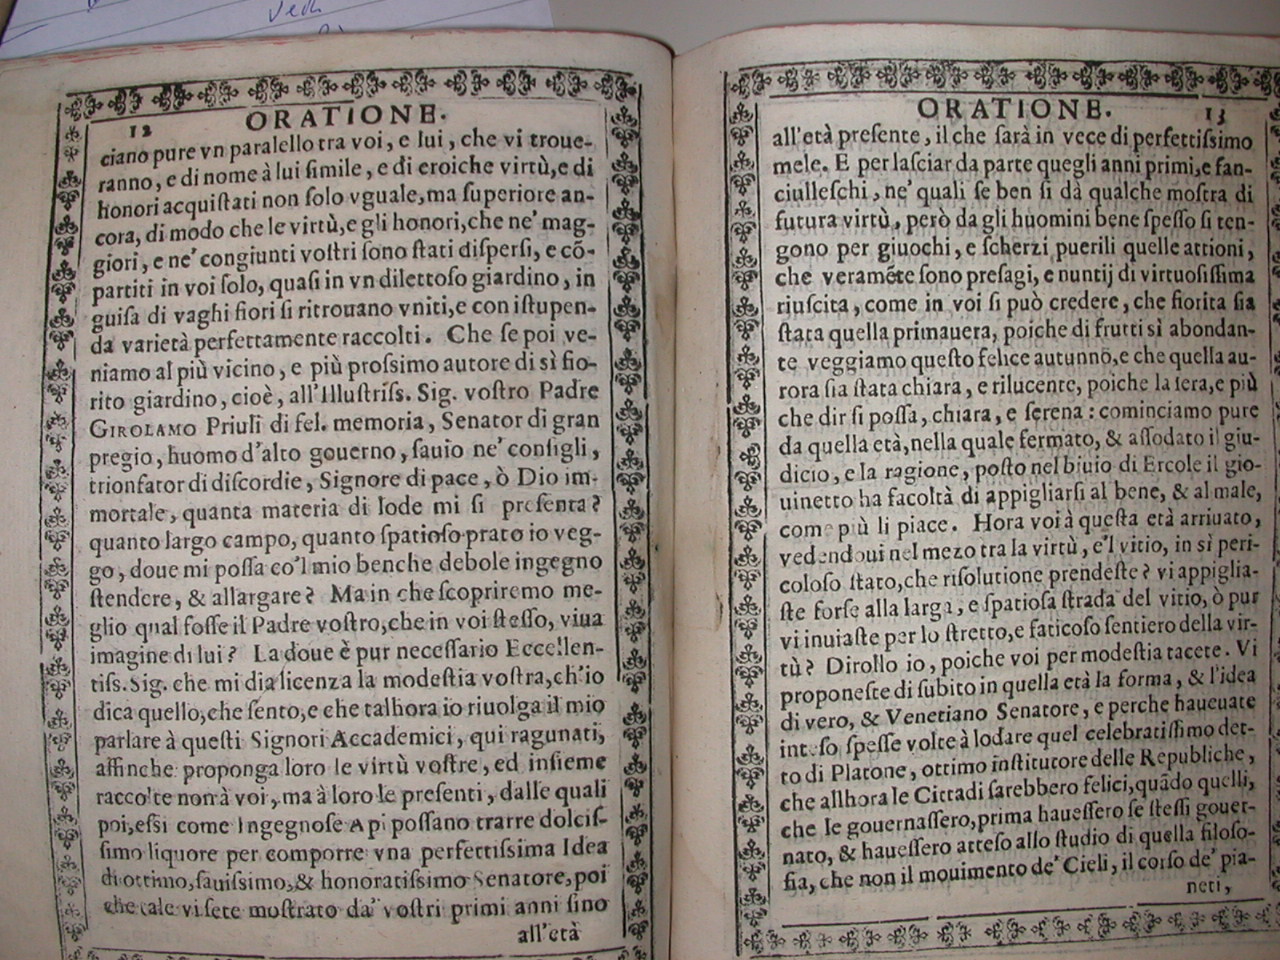 Vedi
12 ORATIONE.
ciano pure vn paralello tra voi, e lui, che vi troue-
ranno, e di nome à lui ſimile, e di eroiche virtù, e di
honori acquiſtati non ſolo vguale, ma ſuperiore an-
cora, di modo che le virtù, e gli honori, che ne' mag-
giori, e ne' congiunti voſtri ſono ſtati diſperſi, e cõ-
partiti in voi ſolo, quaſi in vn dilettoſo giardino, in
guiſa di vaghi fiori ſi ritrouano vniti, e con iſtupen-
da varietà perfettamente raccolti. Che ſe poi ve-
niamo al più vicino, e più proſsimo autore di sì fio-
rito giardino, cioè, all'Illuſtriſs. Sig. voſtro Padre
GIROLAMO Priuli di fel. memoria, Senator di gran
pregio, huomo d'alto gouerno, ſauio ne' conſigli,
trionfator di diſcordie, Signore di pace, ò Dio im-
mortale, quanta materia di lode mi ſi preſenta?
quanto largo campo, quanto ſpatioſo prato io veg-
go, doue mi poſſa co'l mio benche debole ingegno
ſtendere, & allargare? Ma in che ſcopriremo me-
glio qual foſſe il Padre voſtro, che in voi ſteſſo, viua
imagine di lui? La doue è pur neceſſario Eccellen-
tiſs. Sig. che mi dia licenza la modeſtia voſtra, ch'io
dica quello, che ſento, e che talhora io riuolga il mio
parlare à queſti Signori Accademici, qui ragunati,
affinche proponga loro le virtù voſtre, ed inſieme
raccolte non à voi, ma à loro le preſenti, dalle quali
poi, eſsi come Ingegnoſe Api poſſano trarre dolciſ-
ſimo liquore per comporre vna perfettiſsima Idea
di ottimo, ſauiſsimo, & honoratiſsimo Senatore, poi
che tale vi ſete moſtrato da' voſtri primi anni ſino
all'età
ORATIONE. 13
all'età preſente, il che ſarà in vece di perfettiſsimo
mele. E per laſciar da parte quegli anni primi, e fan-
ciulleſchi, ne' quali ſe ben ſi dà qualche moſtra di
futura virtù, però da gli huomini bene ſpeſſo ſi ten-
gono per giuochi, e ſcherzi puerili quelle attioni,
che veramẽte ſono preſagi, e nuntij di virtuoſiſsima
riuſcita, come in voi ſi può credere, che fiorita ſia
ſtata quella primauera, poiche di frutti sì abondan-
te veggiamo queſto felice autunnõ, e che quella au-
rora ſia ſtata chiara, e rilucente, poiche la ſera, e più
che dir ſi poſſa, chiara, e ſerena: cominciamo pure
da quella età, nella quale fermato, & aſſodato il giu-
dicio, e la ragione, poſto nel biuio di Ercole il gio-
uinetto ha facoltà di appigliarſi al bene, & al male,
come più li piace. Hora voi à queſta età arriuato,
vedendoui nel mezo tra la virtù, e'l vitio, in sì peri-
coloſo ſtato, che riſolutione prendeſte? vi appiglia-
ſte forſe alla larga, e ſpatioſa ſtrada del vitio, ò pur
vi inuiaſte per lo ſtretto, e faticoſo ſentiero della vir-
tù? Dirollo io, poiche voi per modeſtia tacete. Vi
proponeſte di ſubito in quella età la forma, & l'idea
di vero, & Venetiano Senatore, e perche haueuate
inteſo ſpeſſe volte à lodare quel celebratiſsimo det-
to di Platone, ottimo inſtitutore delle Republiche,
che allhora le Cittadi ſarebbero felici, quãdo quelli,
che le gouernaſſero, prima haueſſero ſe ſteſsi gouer-
nato, & haueſſero atteſo allo ſtudio di quella filoſo-
fia, che non il mouimento de' Cieli, il corſo de' pia-
neti,